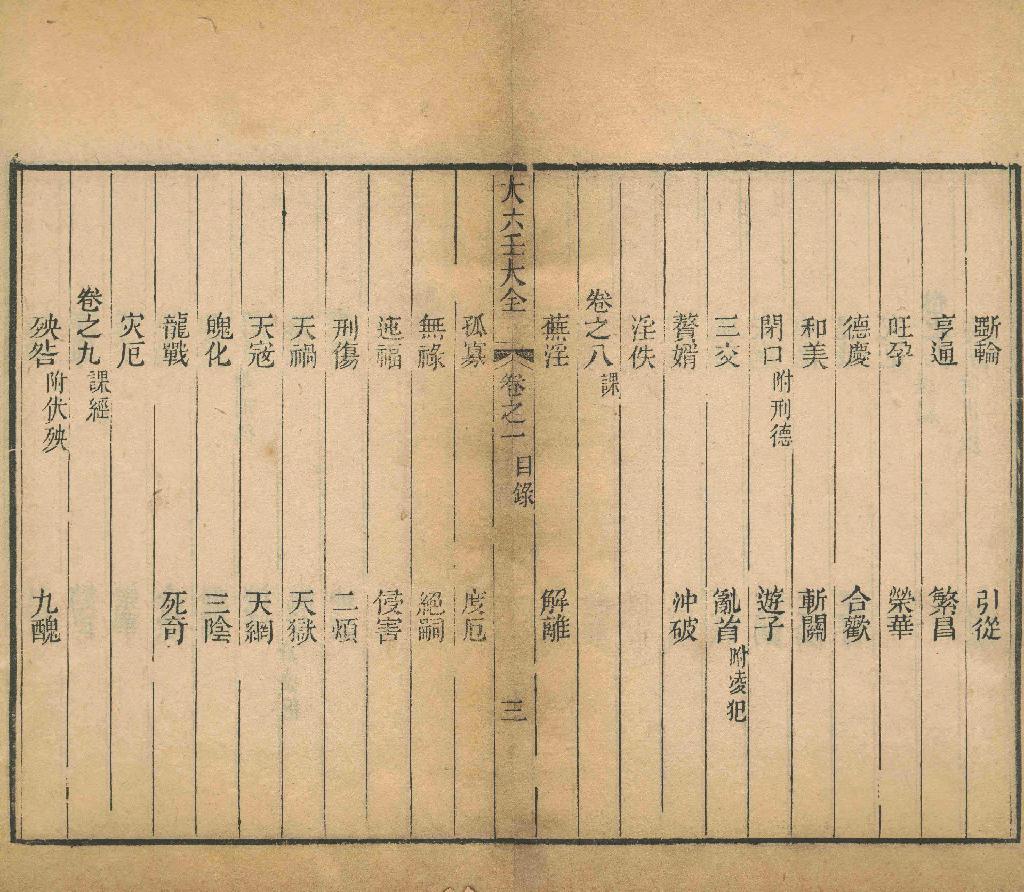 斲輪 引從
亨通 繁昌
旺孕 榮華
德慶 合歡
和美 斬關
閉口附刑德 遊子
三交 亂首附凌犯
贅婿 沖破
淫佚
卷之八課
蕪淫 解離
大六壬大全 卷之一目錄 三
孤寡 度厄
無祿 絕嗣
迍福 侵害
刑傷 二煩
天禍 天獄
天寇 天網
魄化 三陰
龍戰 死奇
灾厄
卷之九課經
殃咎附伏殃 九醜